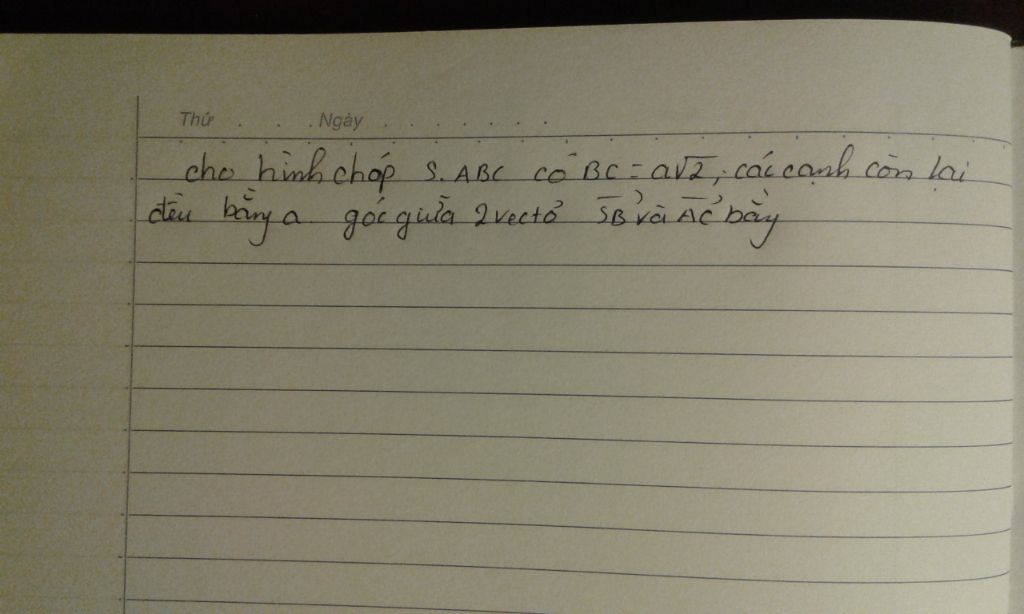 Thứ . . . Ngày . . . . . . .
cho hình chóp S.ABC có BC = a√2, các cạnh còn lại
đều bằng a. góc giữa 2 vectơ SB⃗ và AC⃗ bằng